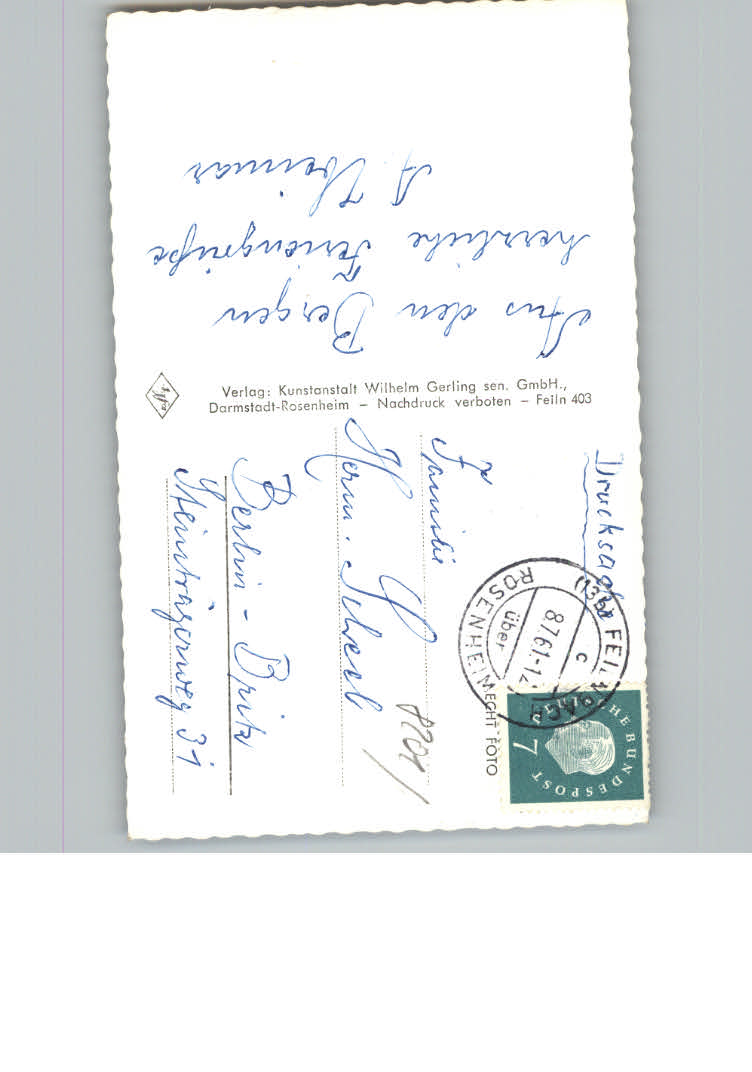 Aus den Bergen
herzliche Feriengrüße
A. Weimar
Verlag: Kunstanstalt Wilhelm Gerling sen. GmbH.,
Darmstadt-Rosenheim – Nachdruck verboten – Feiln 403
Agfa
Drucksache
Familie
Herm. Scheel
Berlin-Britz
Steinträgerweg 31
ECHT FOTO
(13b) FEILNBACH
über
ROSENHEIM
c
8.7.61-12
7
DEUTSCHE BUNDESPOST